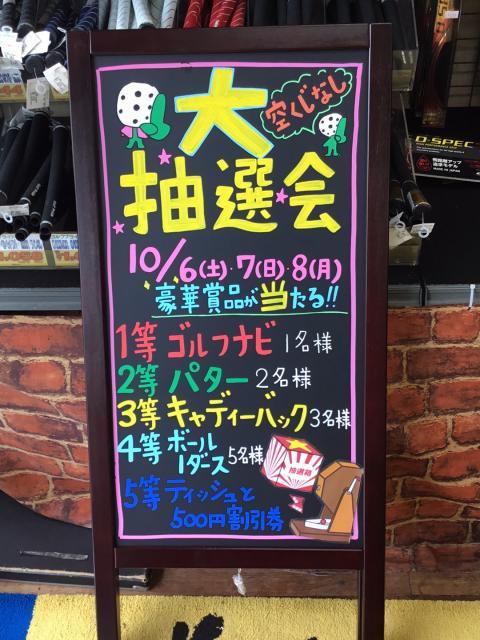 空くじなし
大
抽選会
10/6(土)・7(日)・8(月)
豪華賞品が当たる!!
1等 ゴルフナビ 1名様
2等 パター 2名様
3等 キャディーバック 3名様
4等 ボール
1ダース 5名様
5等 ティッシュと
500円割引券
抽選箱
D-SPEC
MADE IN JAPAN